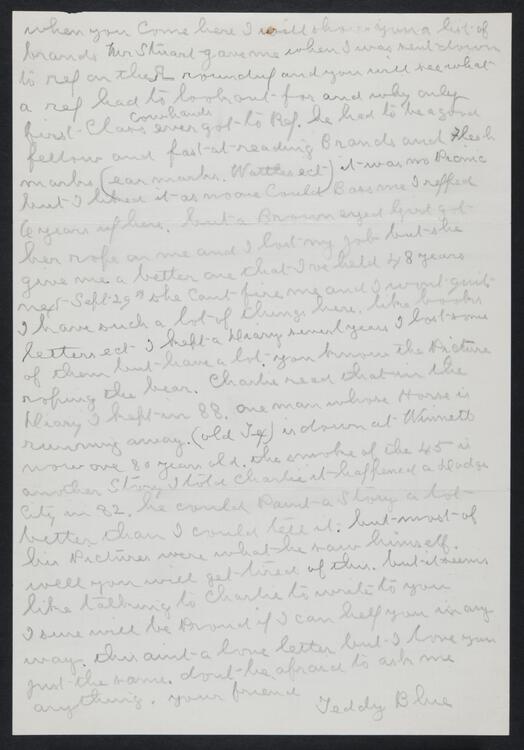 when you come here I will show you a list of
brands Mr Stuart gave me when I was sent down
to rep on the roundup and you will see what
a rep had to look out for and why only
first-Class Cowhands ever got to Rep. he had to be a good
fellow and fast at reading Brands and Flesh
marks (ear marks. Wattles ect) it was no Picnic
but I liked it as no one Could Boss me I repped
6 years up here. but a Brown eyed Girl got
her rope on me and I lost my job but she
give me a better one that I've held 48 years
next Sept. 29th she Cant fire me and I wont quit
I have such a lot of things here, like books
letters ect I kept a Diary several years I lost some
of them but have a lot. you know the Picture
roping the bear. Charlie read that in the
Diary I kept in 88. one man whose Horse is
running away. (old Tex) is down at Winnett
now over 80 years old. the smoke of the 45 is
another Story I told Charlie it happened a Dodge
City in 82. he could Paint a Story a lot
better than I could tell it. but most of
his Pictures were what he saw himself.
well you will get tired of this. but it seems
like talking to Charlie to write to you
I sure will be Proud if I can help you in any
way. this aint a love letter but I love you
just the same. dont be afraid to ask me
anything. your friend
Teddy Blue